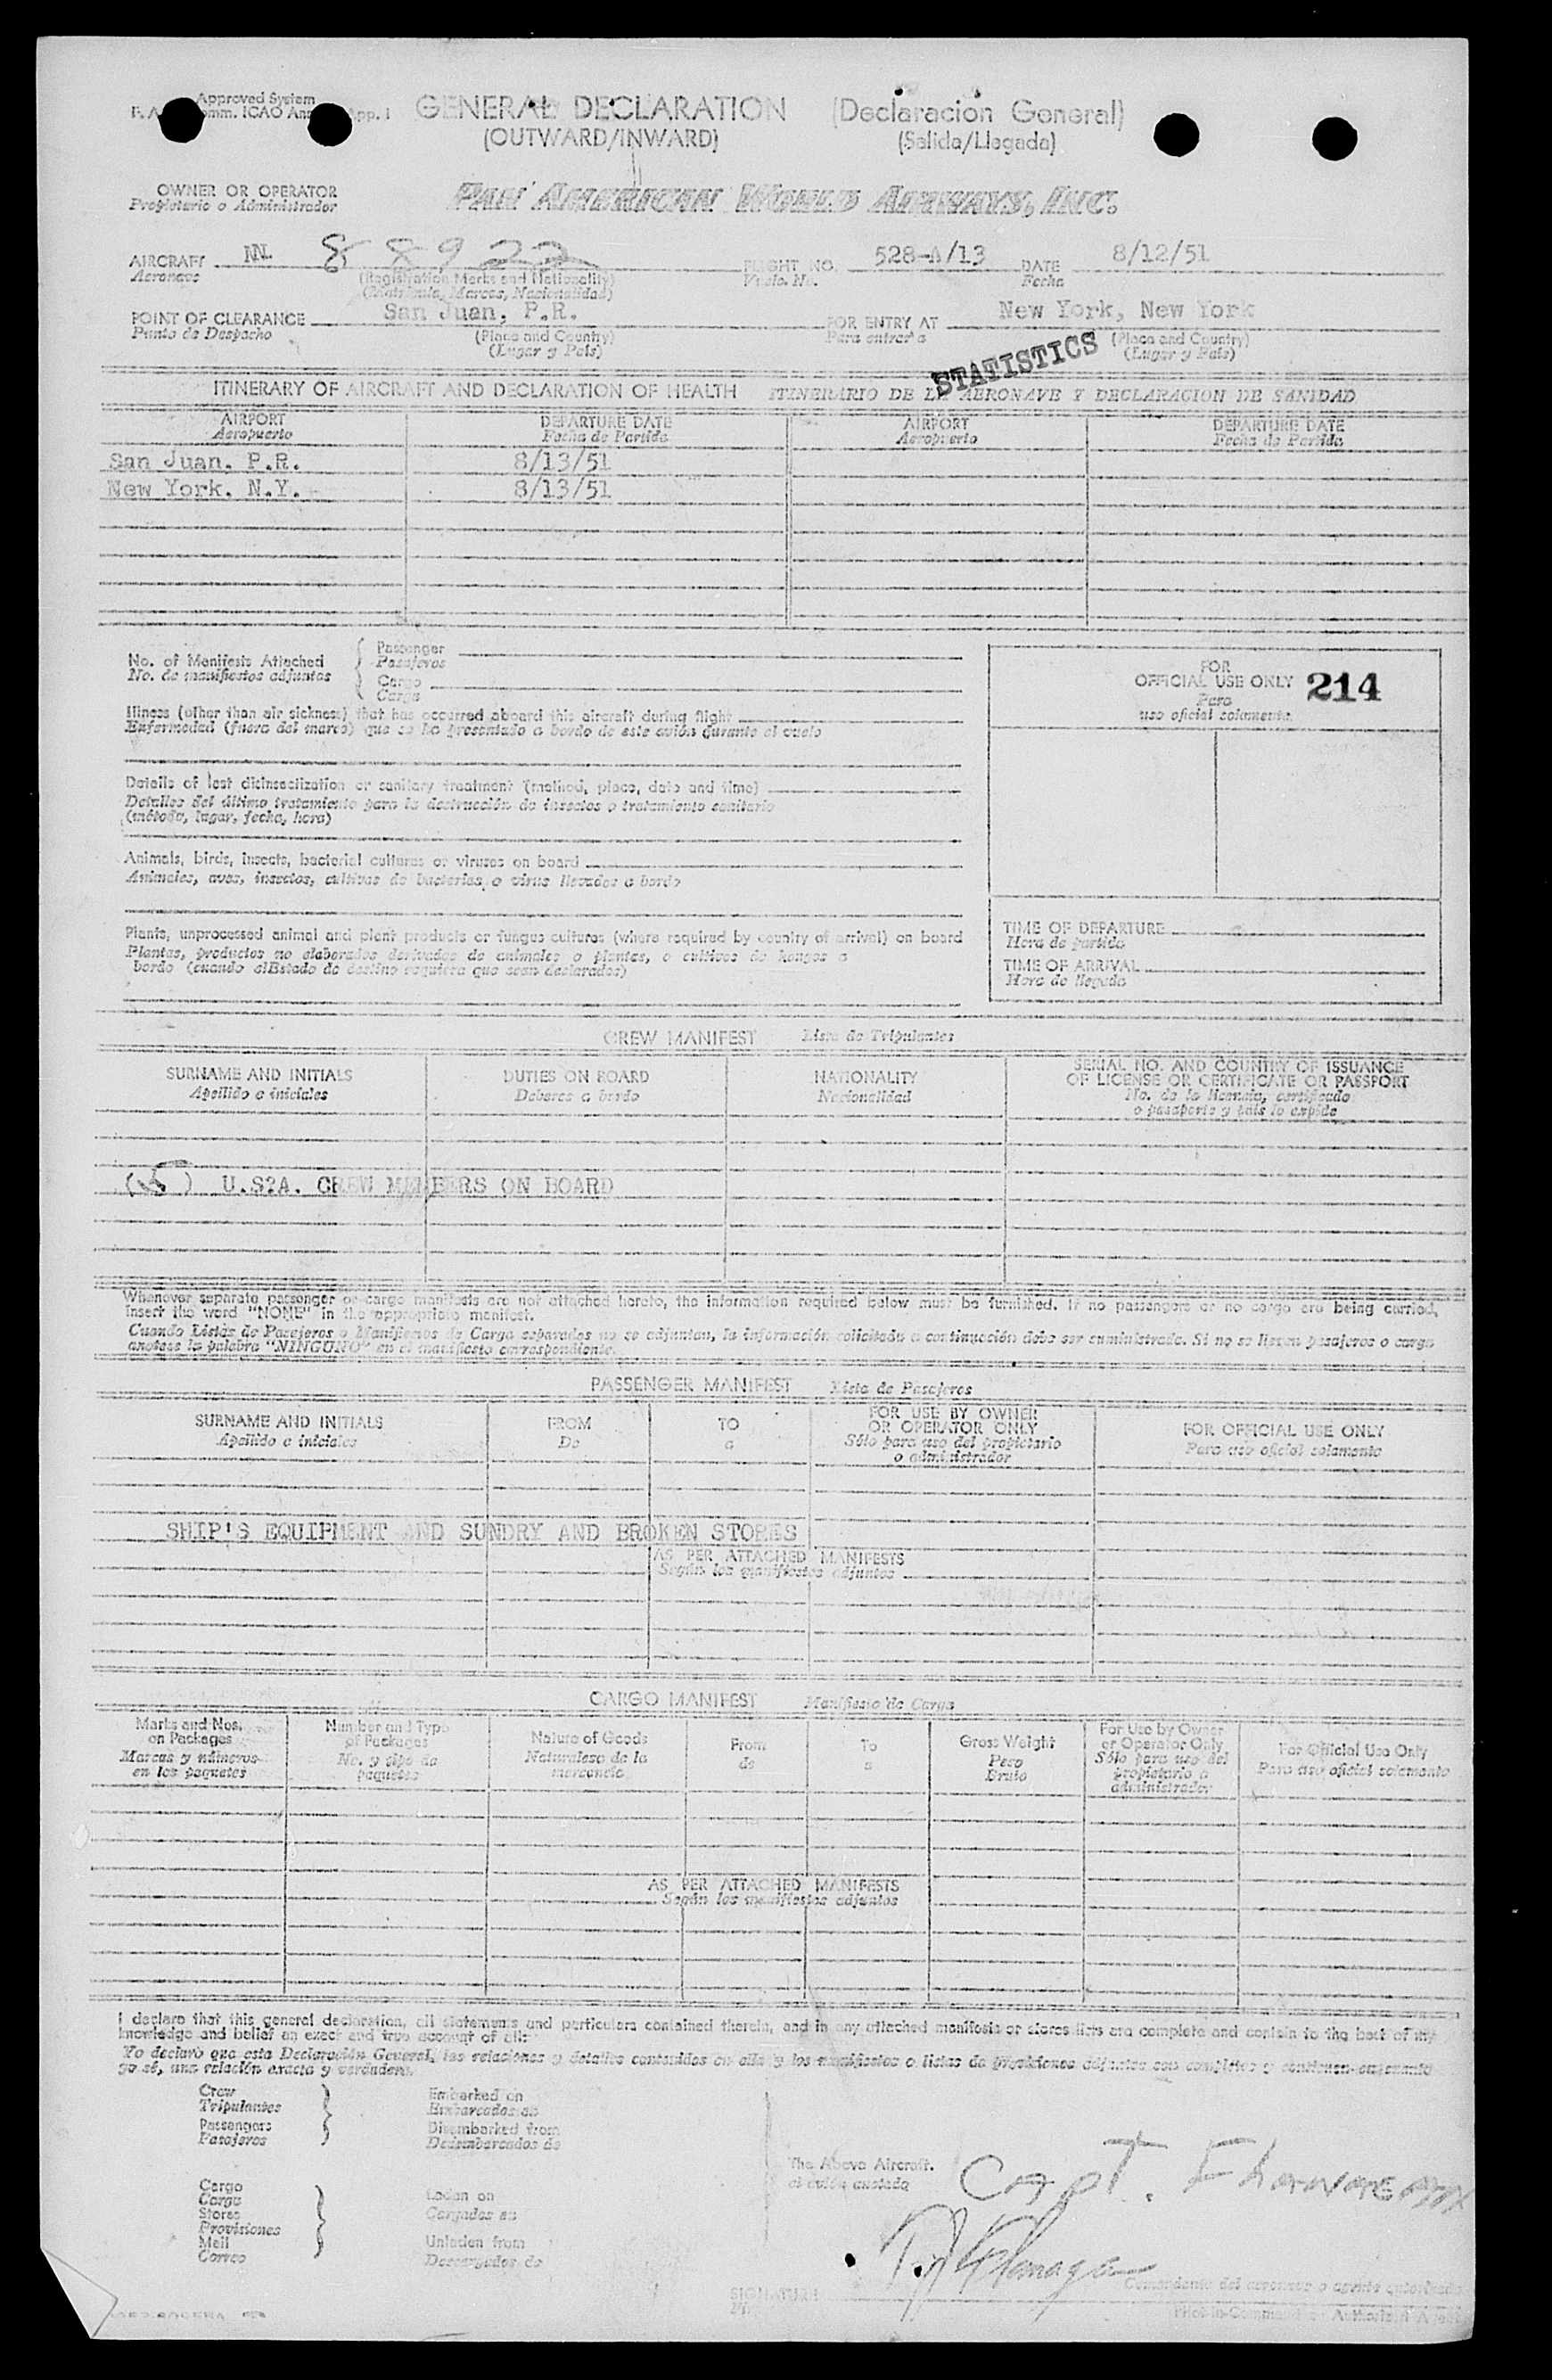 Approved System
GENERAL DECLARATION (Declaración General)
(OUTWARD/INWARD) (Salida/Llegada)
OWNER OR OPERATOR
Propietario o Administrador
PAN AMERICAN WORLD AIRWAYS, INC.
AIRCRAFT N. 88922 FLIGHT NO. 528-A/13 DATE 8/12/51
Aeronave (Registration Marks and Nationality) Vuelo. No. Fecha
(Matricula, Marcas, Nacionalidad)
POINT OF CLEARANCE San Juan, P.R. FOR ENTRY AT New York, New York
Punto de Despacho (Place and Country) Para entrar a (Place and Country)
(Lugar y País) (Lugar y País)
STATISTICS
ITINERARY OF AIRCRAFT AND DECLARATION OF HEALTH ITINERARIO DE LA AERONAVE Y DECLARACION DE SANIDAD
AIRPORT DEPARTURE DATE AIRPORT DEPARTURE DATE
Aeropuerto Fecha de Partida Aeropuerto Fecha de Partida
San Juan, P.R. 8/13/51
New York, N.Y. 8/13/51
No. of Manifests Attached
No. de manifiestos adjuntos
Passenger
Pasajeros
Cargo
Carga
FOR
OFFICIAL USE ONLY 214
Para
uso oficial solamente
Illness (other than air sickness) that has occurred aboard this aircraft during flight
Enfermedad (fuera del mareo) que se ha presentado a bordo de este avión durante el vuelo
Details of last disinsectization or sanitary treatment (method, place, date and time)
Detalles del último tratamiento para la destrucción de insectos o tratamiento sanitario
(método, lugar, fecha, hora)
Animals, birds, insects, bacterial cultures or viruses on board
Animales, aves, insectos, cultivos de bacterias o virus llevados a bordo
Plants, unprocessed animal and plant products or fungus cultures (where required by country of arrival) on board
Plantas, productos no elaborados derivados de animales o plantas, o cultivos de hongos a
bordo (cuando el Estado de destino requiera que sean declarados)
TIME OF DEPARTURE
Hora de partida
TIME OF ARRIVAL
Hora de llegada
CREW MANIFEST Lista de Tripulantes
SURNAME AND INITIALS DUTIES ON BOARD NATIONALITY SERIAL NO. AND COUNTRY OF ISSUANCE
OF LICENSE OR CERTIFICATE OR PASSPORT
Apellido e iniciales Deberes a bordo Nacionalidad No. de la licencia, certificado
o pasaporte y país lo expide
(5) U.S?A. CREW MEMBERS ON BOARD
Whenever separate passenger or cargo manifests are not attached hereto, the information required below must be furnished. If no passengers or no cargo are being carried,
insert the word "NONE" in the appropriate manifest.
Cuando Listas de Pasajeros o Manifiestos de Carga separados no se adjuntan, la información solicitada a continuación debe ser suministrada. Si no se llevan pasajeros o carga
anótese la palabra "NINGUNO" en el manifiesto correspondiente.
PASSENGER MANIFEST Lista de Pasajeros
SURNAME AND INITIALS FROM TO FOR USE BY OWNER
OR OPERATOR ONLY FOR OFFICIAL USE ONLY
Apellido e iniciales De a Sólo para uso del propietario
o administrador Para uso oficial solamente
SHIP'S EQUIPMENT AND SUNDRY AND BROKEN STORES
AS PER ATTACHED MANIFESTS
Según los manifiestos adjuntos
CARGO MANIFEST Manifiesto de Carga
Marks and Nos.
on Packages
Marcas y números
en los paquetes
Number and Type
of Packages
No. y tipo de
paquetes
Nature of Goods
Naturaleza de la
mercancía
From
de
To
a
Gross Weight
Peso
Bruto
For Use by Owner
or Operator Only
Sólo para uso del
propietario o
administrador
For Official Use Only
Para uso oficial solamente
AS PER ATTACHED MANIFESTS
Según los manifiestos adjuntos
I declare that this general declaration, all statements and particulars contained therein, and in any attached manifests or stores lists are complete and contain to the best of my
knowledge and belief an exact and true account of all:
Yo declaro que esta Declaración General, las relaciones y detalles contenidos en ella y los manifiestos o listas de provisiones adjuntas son completos y contienen en cuanto
yo sé, una relación exacta y verdadera.
Crew
Tripulantes
Passengers
Pasajeros
Embarked on
Embarcados en
Disembarked from
Desembarcados de
Cargo
Carga
Stores
Provisiones
Mail
Correo
Laden on
Cargados en
Unladen from
Descargados de
The Above Aircraft.
el avión anotado
Capt.
SIGNATURE
Comandante del aeronave o agente autorizado
Pilot-in-Command or Authorized Agent